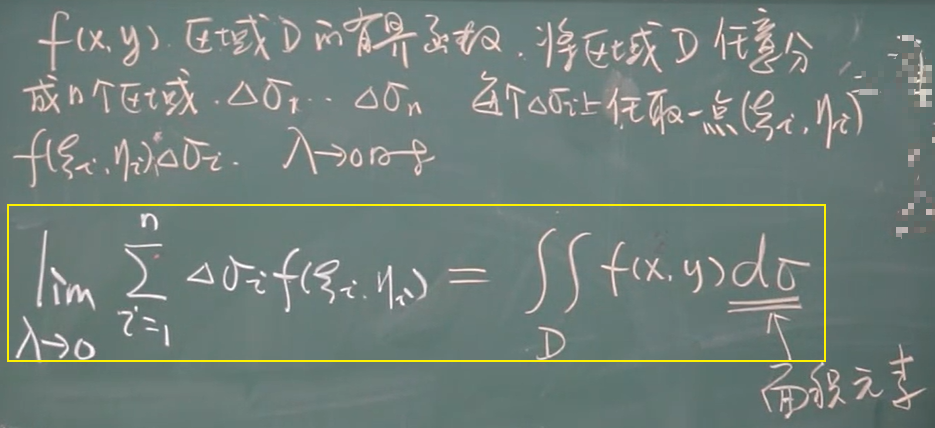 f(x,y). 区域D的有界函数.将区域D任意分
成n个区域.Δσ₁...Δσₙ 每个Δσᵢ上任取一点(ξᵢ,ηᵢ)
f(ξᵢ,ηᵢ)Δσᵢ. λ→0时
lim_{λ→0} ∑_{i=1}^{n} Δσᵢf(ξᵢ,ηᵢ) = ∬_D f(x,y)dσ
面积元素